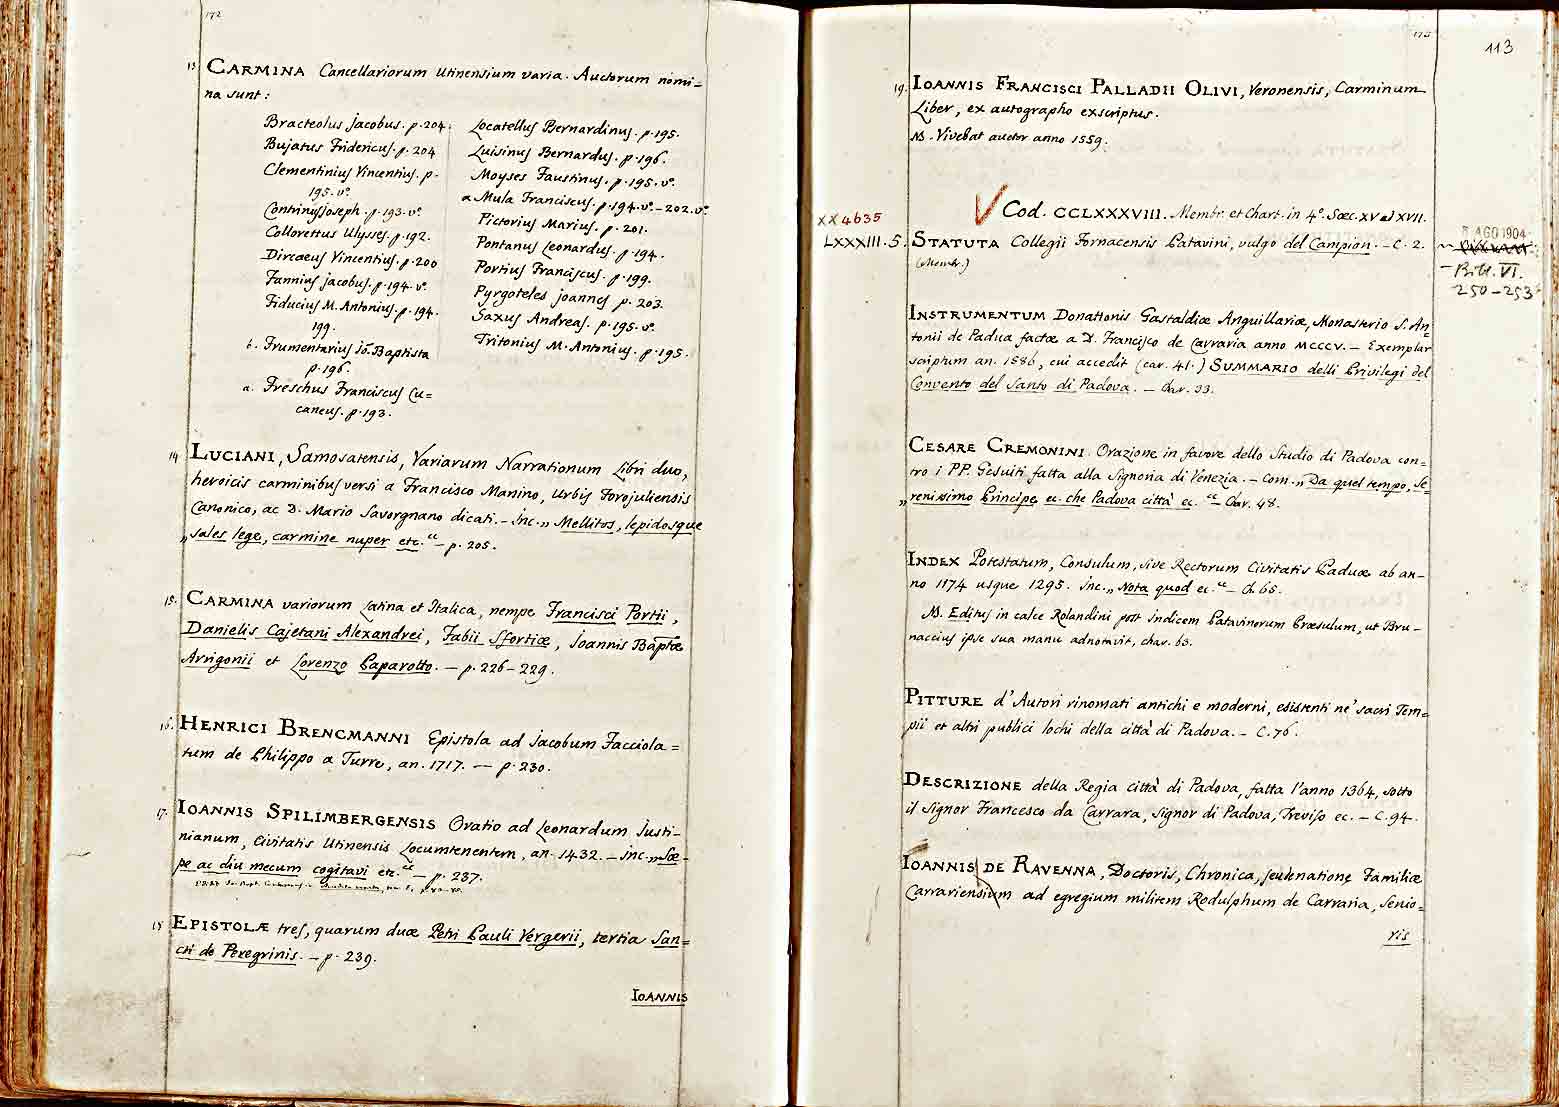 172
13 CARMINA Cancellariorum Utinensium varia. Auctorum nomi=
na sunt:
Bracteolus Jacobus. p. 204.
Bujatus Fridericus. p. 204
Clementinius Vincentius. p.
195. vº.
Joseph. p. 193. vº.
Collorettus Ulysses. p. 192.
Dircaeus Vincentius. p. 200
Fannius Jacobus. p. 194. vº.
Fiducius M. Antonius. p. 194.
199.
b. Frumentarius Jo. Baptista
p. 196.
a. Freschus Franciscus Cu=
caneus. p. 193.
Locatellus Bernardinus. p. 195.
Luisinus Bernardus. p. 196.
Moyses Faustinus. p. 195. vº.
a Mula Franciscus. p. 194. vº. – 202. vº
Pictorius Marius. p. 201.
Pontanus Leonardus. p. 194.
Portius Franciscus. p. 199.
Pyrgoteles Joannes p. 203.
Saxus Andreas. p. 195. vº.
Tritonius M. Antonius. p. 195.
14 LUCIANI, Samosatensis, Variarum Narrationum Libri duo,
heroicis carminibus versi a Francisco Manino, Urbis Forojuliensis
Canonico, ac D. Mario Savorgnano dicati. – inc. „ Mellitos, lepidosque
„ sales lege, carmine nuper etc. “ – p. 205.
15. CARMINA variorum Latina et Italica, nempe Francisci Portii,
Danielis Cajetani Alexandrei, Fabii Sfortiæ, Joannis Baptæ
Arrigonii et Lorenzo Paparotto. – p. 226 – 229.
16. HENRICI BRENCMANNI Epistola ad Jacobum Facciola=
tum de Philippo a Turre, an. 1717. — p. 230.
17. IOANNIS SPILIMBERGENSIS Oratio ad Leonardum Justi-
nianum, Civitatis Utinensis Locumtenentem, an. 1432. – inc. „ Sæ-
pe ac diu mecum cogitavi etc. “ – p. 237.
18 EPISTOLÆ tres, quarum duæ Petri Pauli Vergerii, tertia San=
cti de Peregrinis. – p. 239.
IOANNIS
173
113
19. IOANNIS FRANCISCI PALLADII OLIVI, Veronensis, Carminum
Liber, ex autographo exscriptus.
N. Vivebat auctor anno 1559.
Cod. CCLXXXVIII. Membr. et Chart. in 4º. Sæc. XV et XVII.
XX 4635
LXXXIII. 5.
STATUTA Collegii Fornacensis Patavini, vulgo del Campion. – C. 2.
(Membr.)
8 AGO 1904
Bibl. VI.
250 – 253
INSTRUMENTUM Donationis Gastaldiæ Anguillariæ, Monasterio S. An=
tonii de Padua factæ a D. Francisco de Carraria anno MCCCV. – Exemplar
scriptum an. 1586, cui accedit (car. 41.) SUMMARIO delli Privilegi del
Convento del Santo di Padova. – Car. 33.
CESARE CREMONINI Orazione in favore dello Studio di Padova con=
tro i PP. Gesuiti fatta alla Signoria di Venezia. – com. „ Da quel tempo, Se=
„ renissimo Principe, ec. che Padova città ec. “ – Car. 48.
INDEX Potestatum, Consulum, sive Rectorum Civitatis Paduæ ab an-
no 1174 usque 1295. inc. „ Nota quod ec. “ – Ch. 65.
N. Editus in calce Rolandini post Indicem Patavinorum Præsulum, ut Bru-
naccius ipse sua manu adnotavit, char. 63.
PITTURE d'Autori rinomati antichi e moderni, esistenti ne' sacri Tem=
pii et altri publici lochi della città di Padova. – C. 76.
DESCRIZIONE della Regia città di Padova, fatta l'anno 1364, sotto
il Signor Francesco da Carrara, Signor di Padova, Treviso ec. – C. 94.
IOANNIS DE RAVENNA, Doctoris, Chronica, seu enatione Familiæ
Carrariensium ad egregium militem Rodulphum de Carraria, Senio=
ris